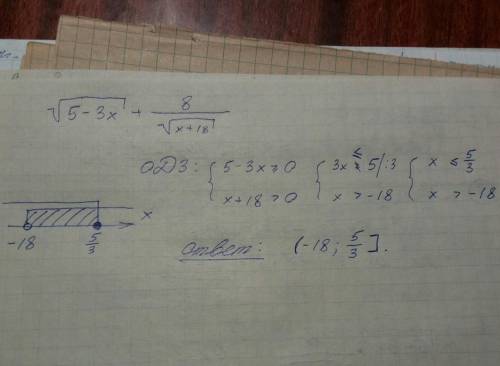 √(5-3x) + 8/√(x+18)
ОДЗ: { 5-3x≥0 { 3x ≤ 5 |:3 { x ≤ 5/3
x+18>0 x > -18 x > -18
x
-18 5/3
Ответ: (-18; 5/3].